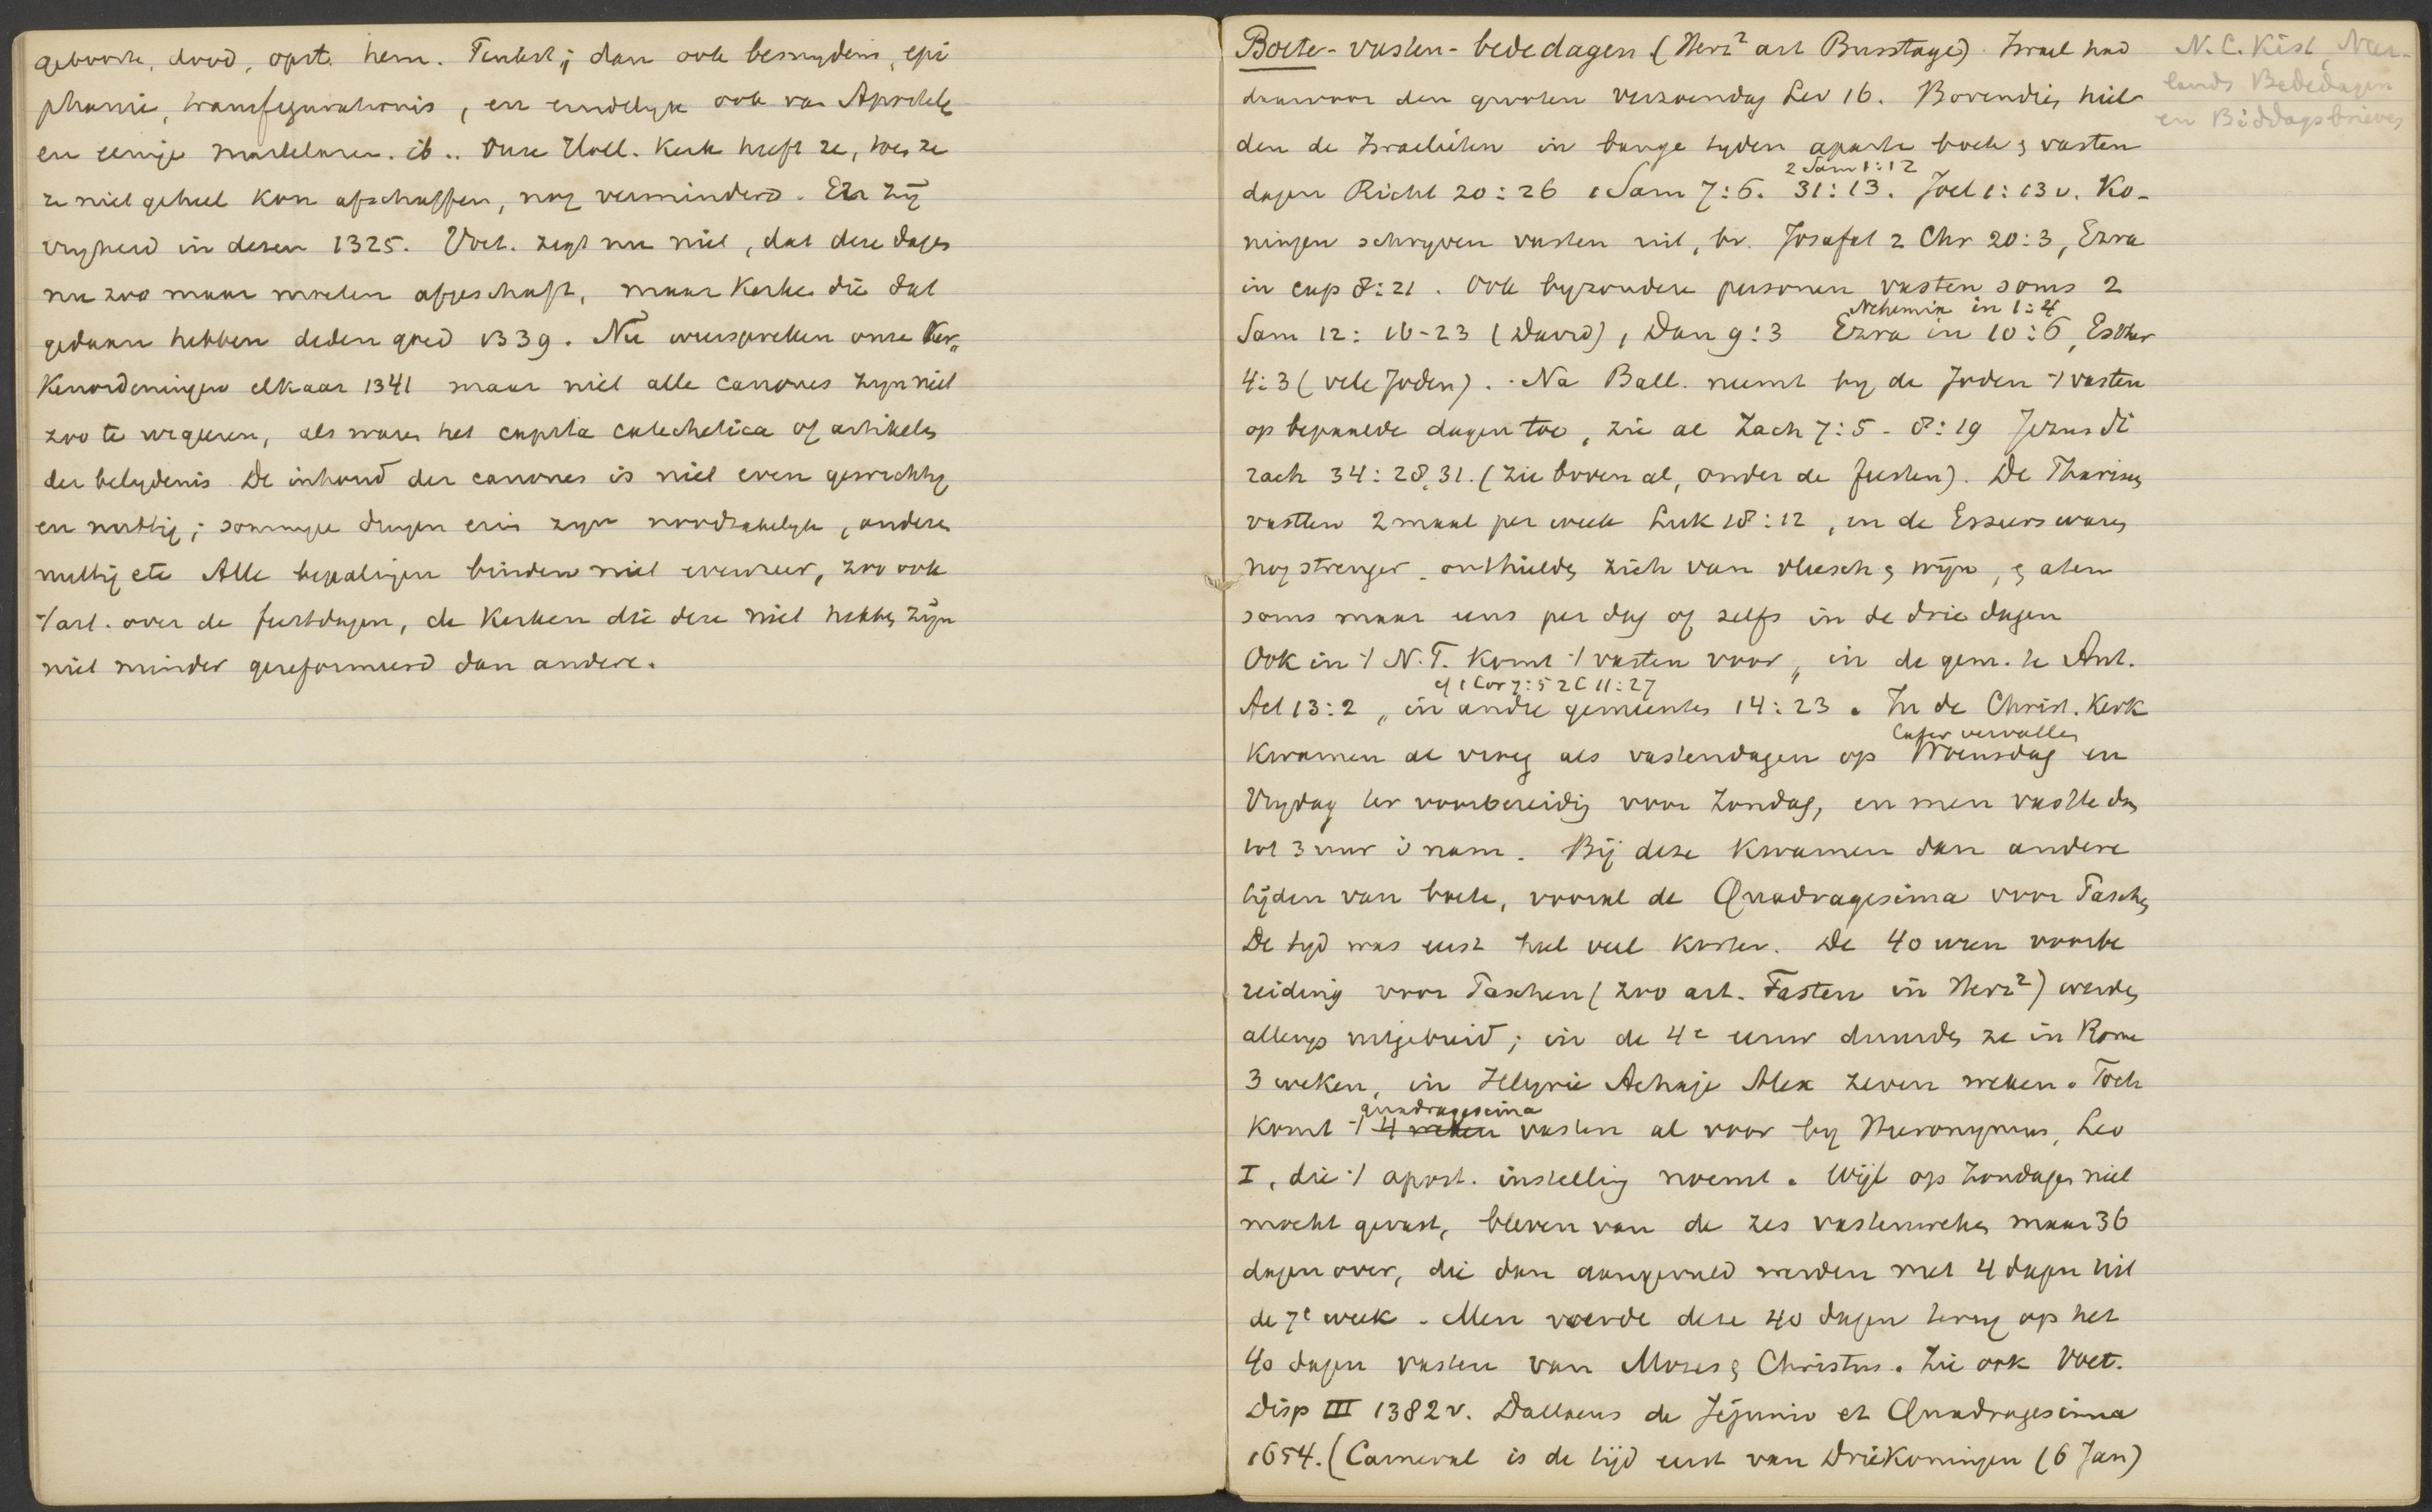 geboorte, dood, opst. hem. Pinkst; dan ook besnydenis, epi
phanie, transfigurationis, en eindelyk ook van Apostele
en eenige martelaren. ib.. Onze Holl. Kerk heeft ze, toen ze
ze niet geheel kon afschaffen, nog verminderd. Er zij
vryheid in dezen 1325. Voet. zegt nu niet, dat deze dagen
nu zoo maar moeten afgeschaft, maar Kerken die dat
gedaan hebben deden goed 1339. Nu weerspreken onze Ker„
Kenordeningen elkaar 1341 maar niet alle canones zyn niet
zoo te urgeeren, als waren het capita catechetica of artikelen
der belydenis. De inhoud der canones is niet even gewichtig
en nuttig; sommige dingen erin zyn noodzakelyk, andere
nuttig etc Alle bepalingen binden niet evenzeer, zoo ook
't art. over de feestdagen, de Kerken die deze niet hebben zijn
niet minder gereformeerd dan andere.
Boete-vasten-bededagen (Herz² art Busstage). Israel had
daarvoor den grooten verzoendag Lev 16. Bovendien hiel
den de Israelieten in bange tyden aparte boete & vasten
2 Sam 1:12
dagen Richt 20:26 1 Sam 7:6. 31:13. Joel 1:13v. Ko-
ningen schryven vasten uit, bv. Josafat 2 Chr 20:3, Ezra
in cap 8:21. Ook byzondere personen vasten soms 2
Nehemia in 1:4
Sam 12: 16-23 (David), Dan 9:3 Ezra in 10:6, Esther
4:3 (vele Joden). Na Ball. neemt by de Joden 't vasten
op bepaalde dagen toe, zie al Zach 7:5 - 8:19 Jezus Si
rach 34:28,31. (zie boven al, onder de feesten). De Phariseen
vastten 2 maal per week Luk 18:12, en de Esseers waren
nog strenger, onthielden zich van vleesch & wijn, & aten
soms maar eens per dag of zelfs in de drie dagen
Ook in 't N.T. komt 't vasten voor, in de gem. te Ant.
cf 1 Cor 7:5 2 C 11:27
Act 13:2, in andre gemeenten 14:23. In de Christ. Kerk
later vervallen
Kwamen al vroeg als vastendagen op Woensdag en
Vrydag ter voorbereidig voor Zondag, en men vastte dan
tot 3 uur 's nam. Bij deze Kwamen dan andere
tijden van boete, vooral de Quadragesima voor Paschen
De tyd was eerst heel veel korter. De 40 uren voorbe
reiding voor Paschen (zoo art. Fasten in Herz²) werden
allengs uitgebreid; in de 4e eeuw duurden ze in Rome
3 weken, in Illyrie Achaje Alex zeven weken. Toch
quadragesima
komt 't 4 weken vasten al voor by Hieronymus, Leo
I, die 't apost. instelling noemt. Wijl op Zondagen niet
mocht gevast, bleven van de zes vastenweken maar 36
dagen over, die dan aangevuld werden met 4 dagen uit
de 7e week. Men voerde deze 40 dagen terug op het
40 dagen vasten van Mozes & Christus. Zie ook Voet.
Disp III 1382v. Dallaeus de Jejunio et Quadragesima
1654. (Carneval is de tijd eerst van Driekoningen (6 Jan)
N.C. Kist, Neer-
lands Bededagen
en Biddagsbrieven